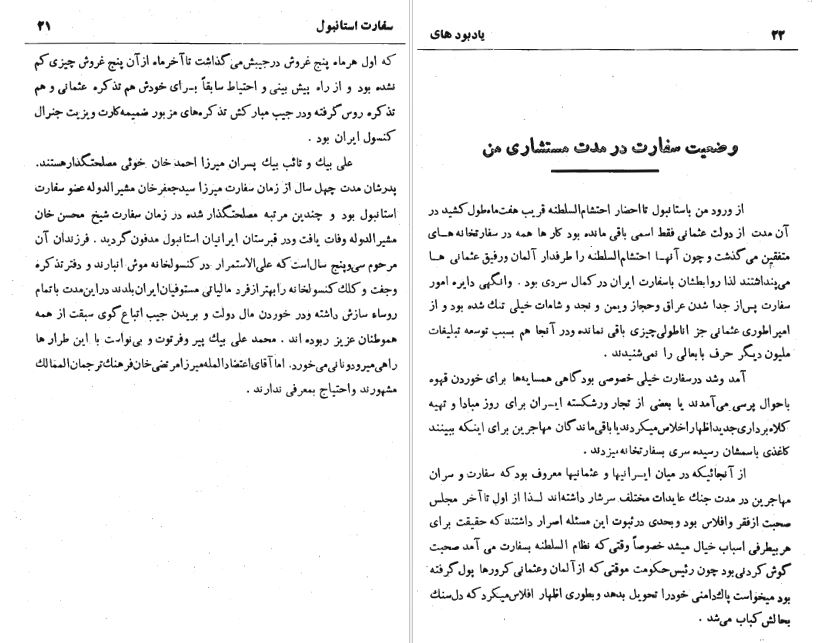 سفارت استانبول ۲۱
که اول هرماه پنج غروش درجیبش می‌گذاشت تا آخرماه از آن پنج غروش چیزی کم
نشده بود و از راه پیش بینی و احتیاط سابقاً برای خودش هم تذکره عثمانی و هم
تذکره روس گرفته ودر جیب مبارکش تذکره‌های مزبور ضمیمه کارت ویزیت جنرال
کنسول ایران بود .
علی بیك و تائب بیك پسران میرزا احمد خان خوئی مصلحتگذارهستند.
پدرشان مدت چهل سال از زمان سفارت میرزا سیدجعفرخان مشیرالدوله عضو سفارت
استانبول بود و چندین مرتبه مصلحتگذار شده در زمان سفارت شیخ محسن خان
مشیرالدوله وفات یافت ودر قبرستان ایرانیان استانبول مدفون گردید . فرزندان آن
مرحوم سی‌وپنج سال‌است که علی‌الاستمرار در کنسولخانه موش انبارند و دفتر تذکره
وجفت وکلك کنسولخانه را بهتر ازفرد مالیاتی مستوفیان ایران بلدند در این‌مدت با تمام
روساء سازش داشته ودر خوردن مال دولت و بریدن جیب اتباع گوی سبقت از همه
هموطنان عزیز ربوده اند . محمد علی بیك پیر وفرتوت و بی‌نواست با این طرار ها
راهی میرود ونانی می‌خورد، اما آقای اعتضادالمله میرزا مرتضی خان فرهنك ترجمان‌الممالك
مشهورند واحتیاج بمعرفی ندارند .
۲۲ یادبود های
وضعیت سفارت در مدت مستشاری من
از ورود من باستانبول تا احضار احتشام‌السلطنه قریب هفت‌ماه طول کشید در
آن مدت از دولت عثمانی فقط اسمی باقی مانده بود کار ها همه در سفارتخانه های
متفقین می‌گذشت و چون آنها احتشام‌السلطنه را طرفدار آلمان ورفیق عثمانی ها
می‌پنداشتند لذا روابطشان باسفارت ایران در کمال سردی بود . وانگهی دایره امور
سفارت پس‌از جدا شدن عراق وحجاز ویمن و نجد و شامات خیلی تنك شده بود و از
امپراطوری عثمانی جز اناطولی‌چیزی باقی نمانده ودر آنجا هم بسبب توسعه تبلیغات
ملیون دیگر حرف باب‌عالی را نمی‌شنیدند .
آمد وشد در سفارت خیلی خصوصی بود گاهی همسایه‌ها برای خوردن قهوه
یا احوال پرسی می‌آمدند یا بعضی از تجار ورشکسته ایران برای روز مبادا و تهیه
کلاه برداری جدید اظهار اخلاص میکردند یا باقی‌ماندگان مهاجرین برای اینکه ببینند
کاغذی باسمشان رسیده سری بسفارتخانه میزدند .
از آنجائیکه در میان ایرانیها و عثمانیها معروف بود که سفارت و سران
مهاجرین در مدت جنك عایدات مختلف سرشار داشته‌اند لذا از اول تا آخر مجلس
صحبت از فقر و افلاس بود وبحدی در ثبوت این مسئله اصرار داشتند که حقیقت برای
هر بیطرفی اسباب خیال میشد خصوصاً وقتی که نظام السلطنه بسفارت می آمد صحبت
گوش کردنی بود چون رئیس حکومت موقتی که از آلمان وعثمانی کرورها پول گرفته
بود میخواست پاك‌دامنی خودرا تحویل بدهد وبطوری اظهار افلاس میکرد که دل سنك
بحالش کباب می‌شد .